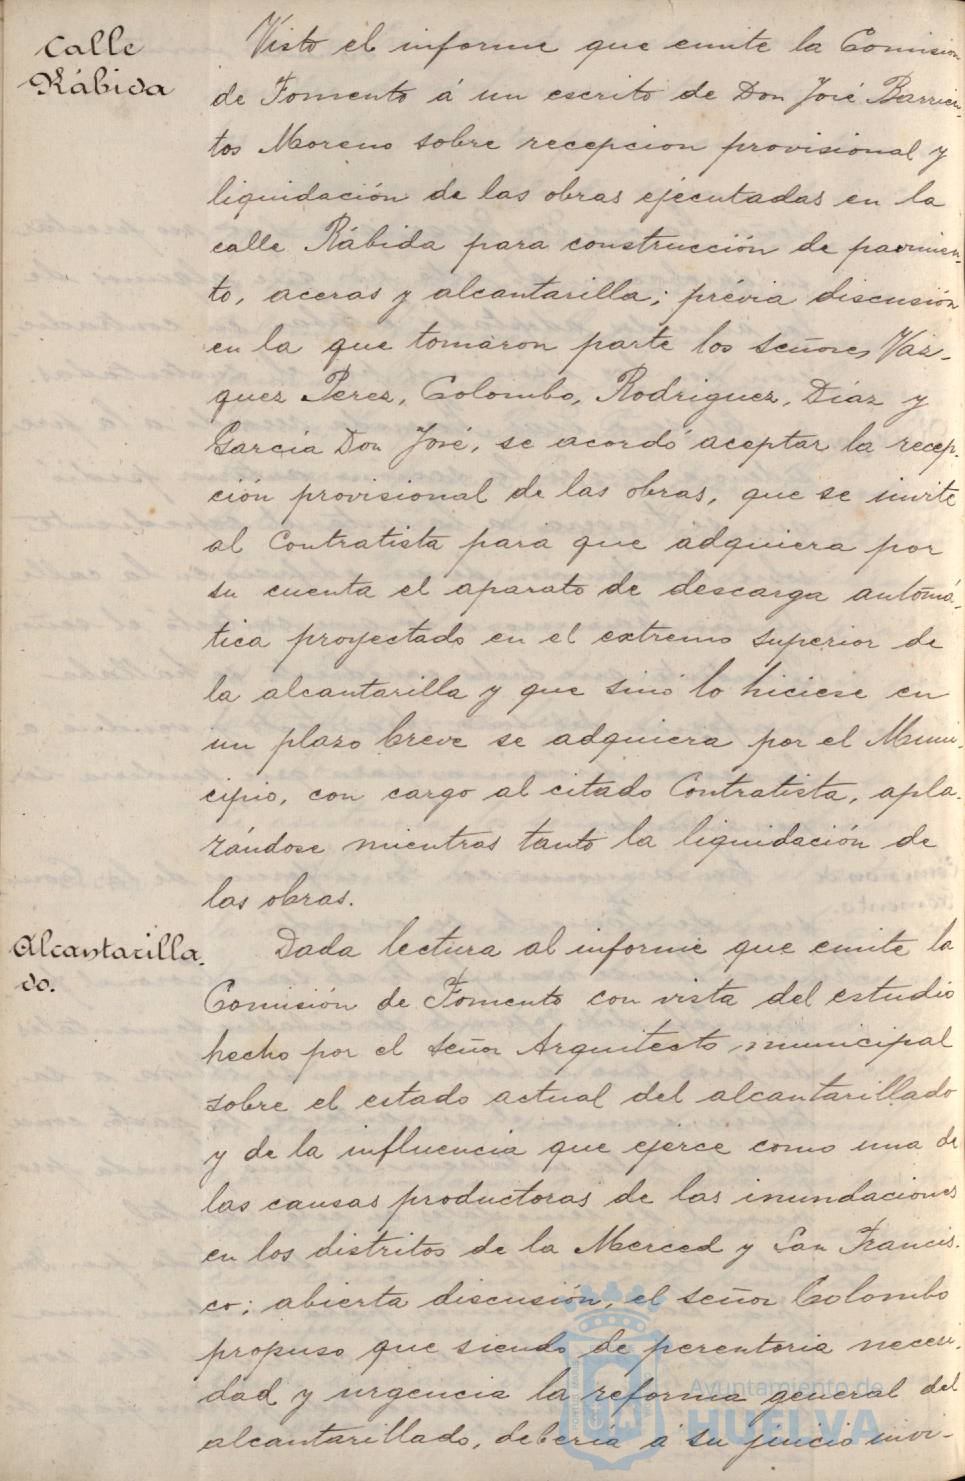 Calle
Rábida
Visto el informe que emite la Comision
de Fomento á un escrito de Don José Barrien-
tos Moreno sobre recepcion provisional y
liquidación de las obras ejecutadas en la
calle Rábida para construcción de pavimen-
to, aceras y alcantarilla; prévia discusión
en la que tomaron parte los señores Váz-
quez Perez, Colombo, Rodriguez, Díaz y
García Don José, se acordó aceptar la recep-
ción provisional de las obras, que se invite
al Contratista para que adquiera por
su cuenta el aparato de descarga automá-
tica proyectado en el extremo superior de
la alcantarilla y que sinó lo hiciese en
un plazo breve se adquiera por el Muni-
cipio, con cargo al citado Contratista, apla-
zándose mientras tanto la liquidación de
las obras.
Alcantarilla-
do.
Dada lectura al informe que emite la
Comisión de Fomento con vista del estudio
hecho por el señor Arquitecto municipal
sobre el estado actual del alcantarillado
y de la influencia que ejerce como una de
las causas productoras de las inundaciones
en los distritos de la Merced y San Francis-
co; abierta discusión, el señor Colombo
propuso que siendo de perentoria necesi-
dad y urgencia la reforma general del
alcantarillado, debería á su juicio invi-
Ayuntamiento de
HUELVA